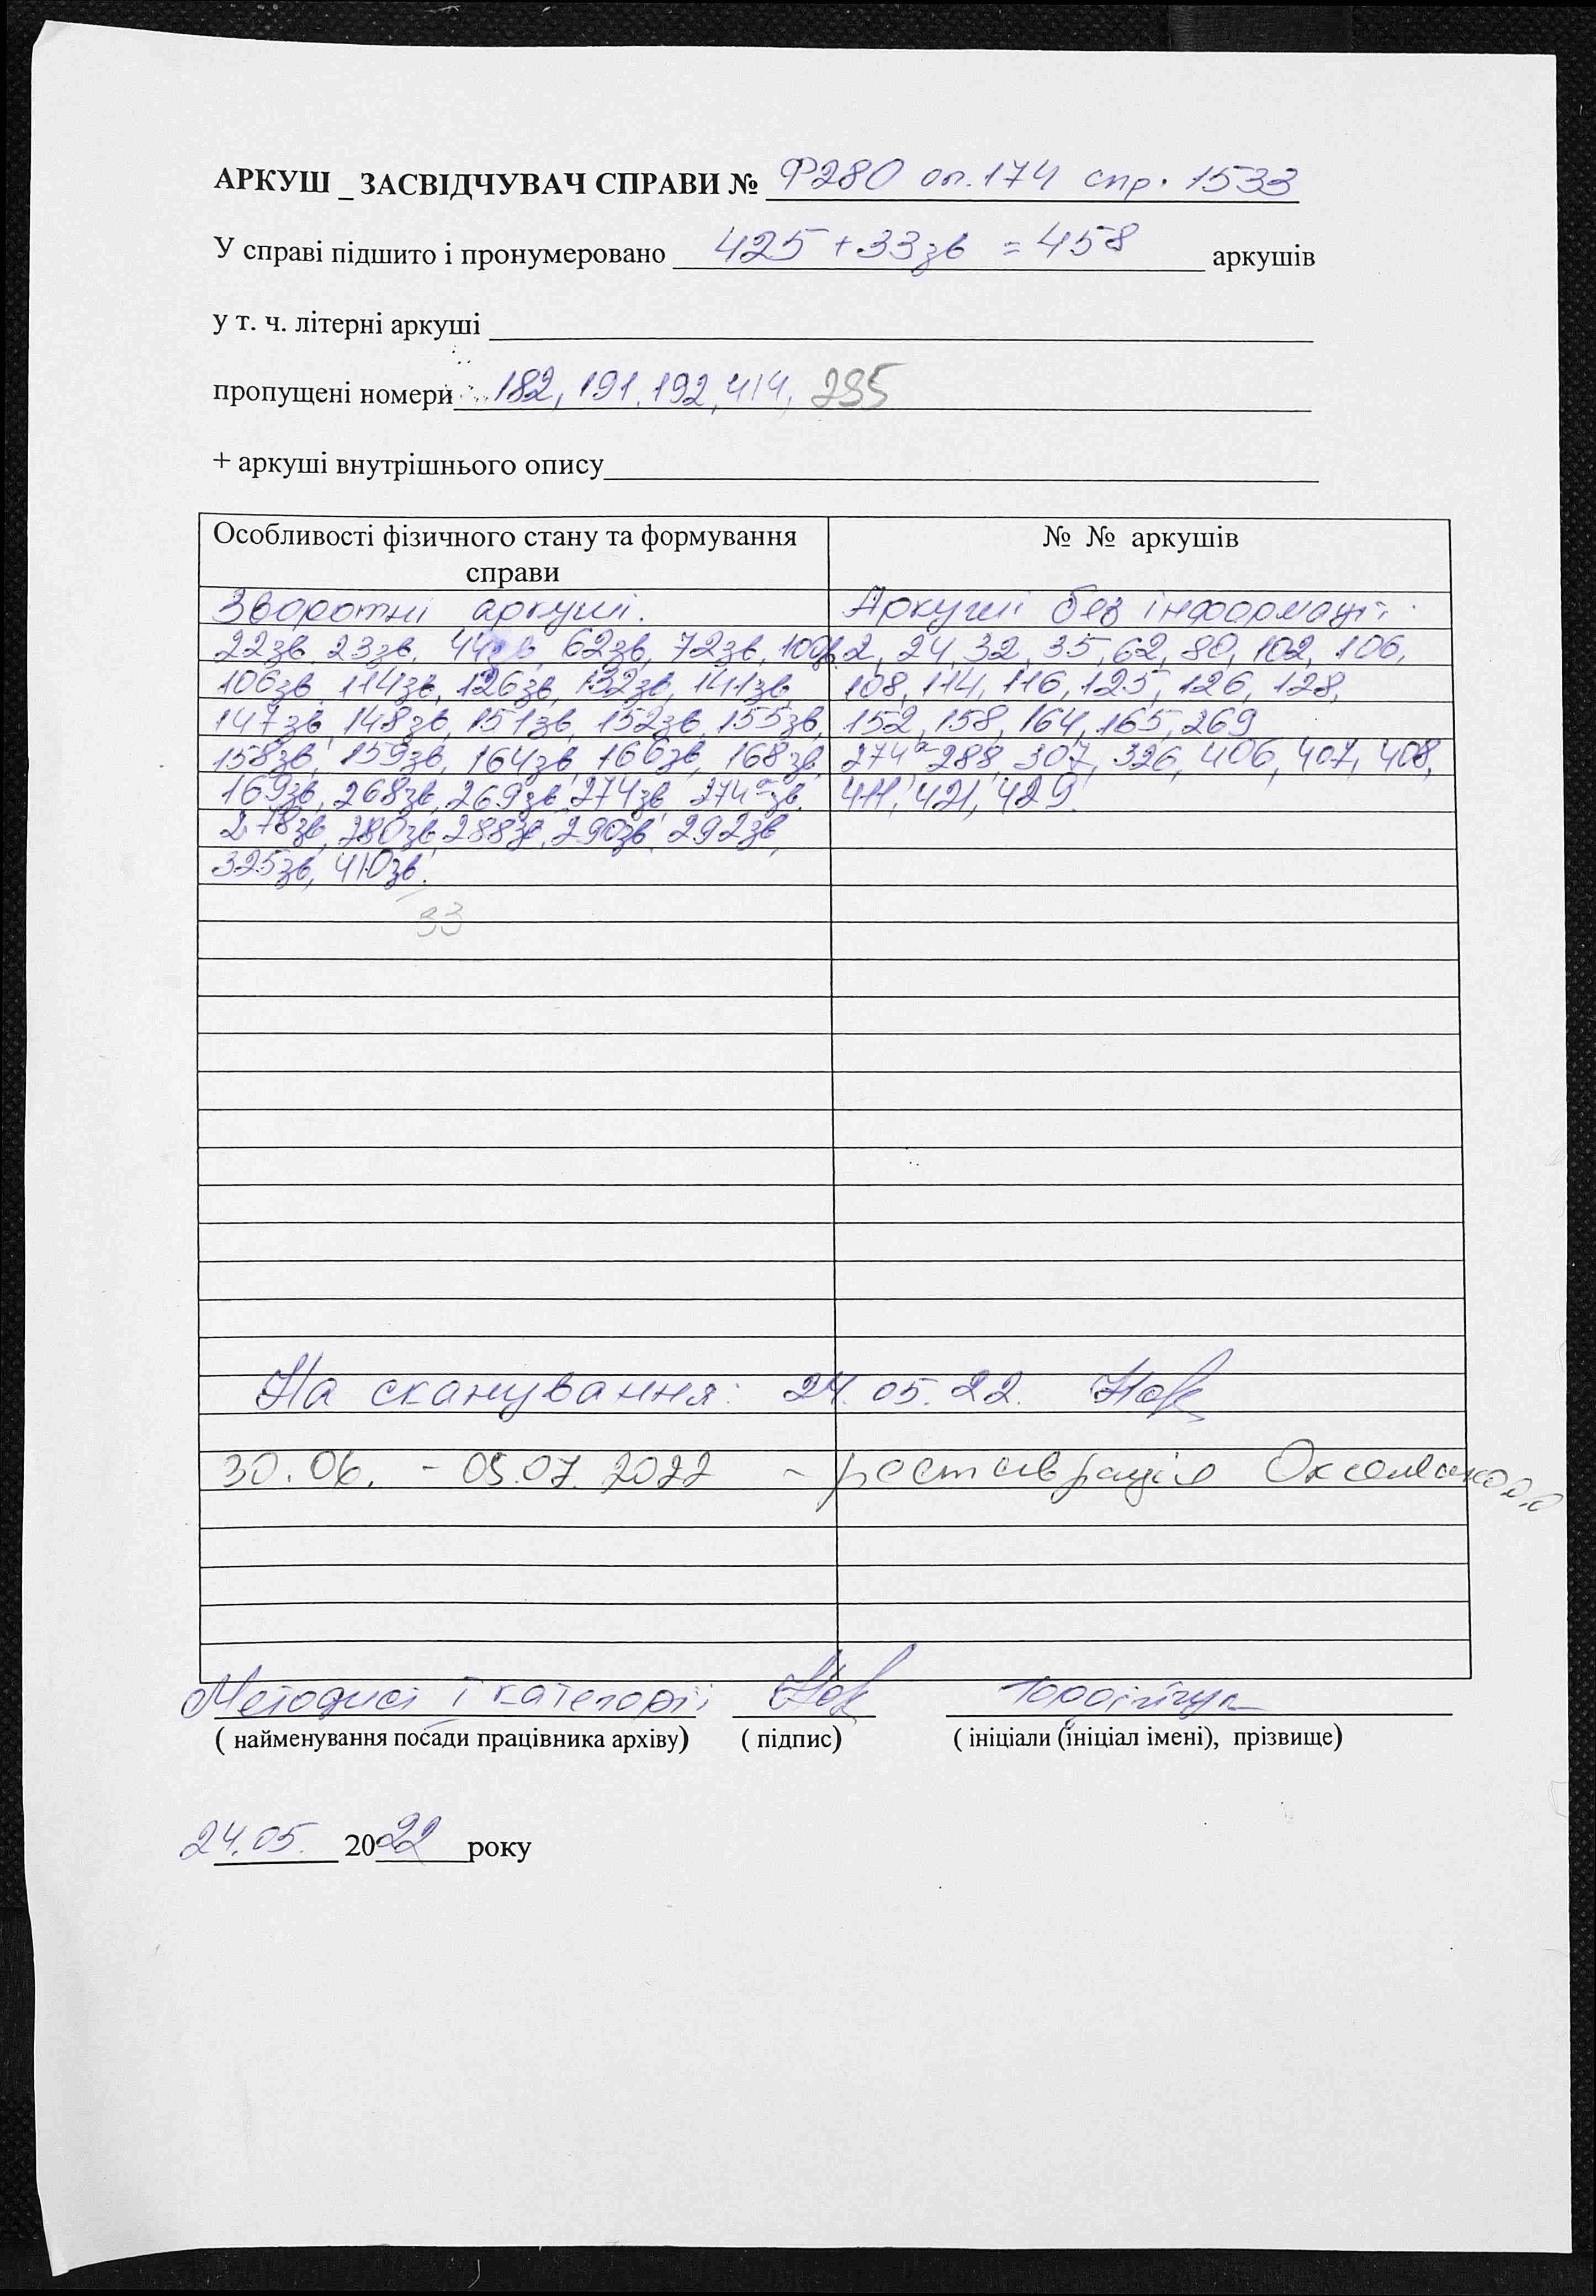 АРКУШ _ ЗАСВІДЧУВАЧ СПРАВИ № Ф280 оп.174 спр. 1533
У справі підшито і пронумеровано 425 + 33зв = 458 аркушів
у т. ч. літерні аркуші
пропущені номери 182, 191, 192, 414, 295
+ аркуші внутрішнього опису
Особливості фізичного стану та формування справи № № аркушів
Зворотні аркуші. Аркуші без інформації:
22зв, 23зв, 44зв, 62зв, 72зв, 100зв 2, 24, 32, 35, 62, 80, 102, 106,
106зв, 114зв, 126зв, 132зв, 141зв, 108, 114, 116, 125, 126, 128,
147зв, 148зв, 151зв, 152зв, 155зв, 152, 158, 164, 165, 269
158зв, 159зв, 164зв, 166зв, 168зв, 274а 288, 307, 326, 406, 407, 408,
169зв, 268зв, 269зв, 274зв, 274а зв, 411, 421, 429.
278зв, 280зв, 288зв, 290зв, 292зв,
325зв, 410зв.
33
На сканування: 24.05.22.
30.06. - 05.07.2022 - реставрація
Методист І категорії
( найменування посади працівника архіву) ( підпис) ( ініціали (ініціал імені), прізвище)
24.05. 2022 року